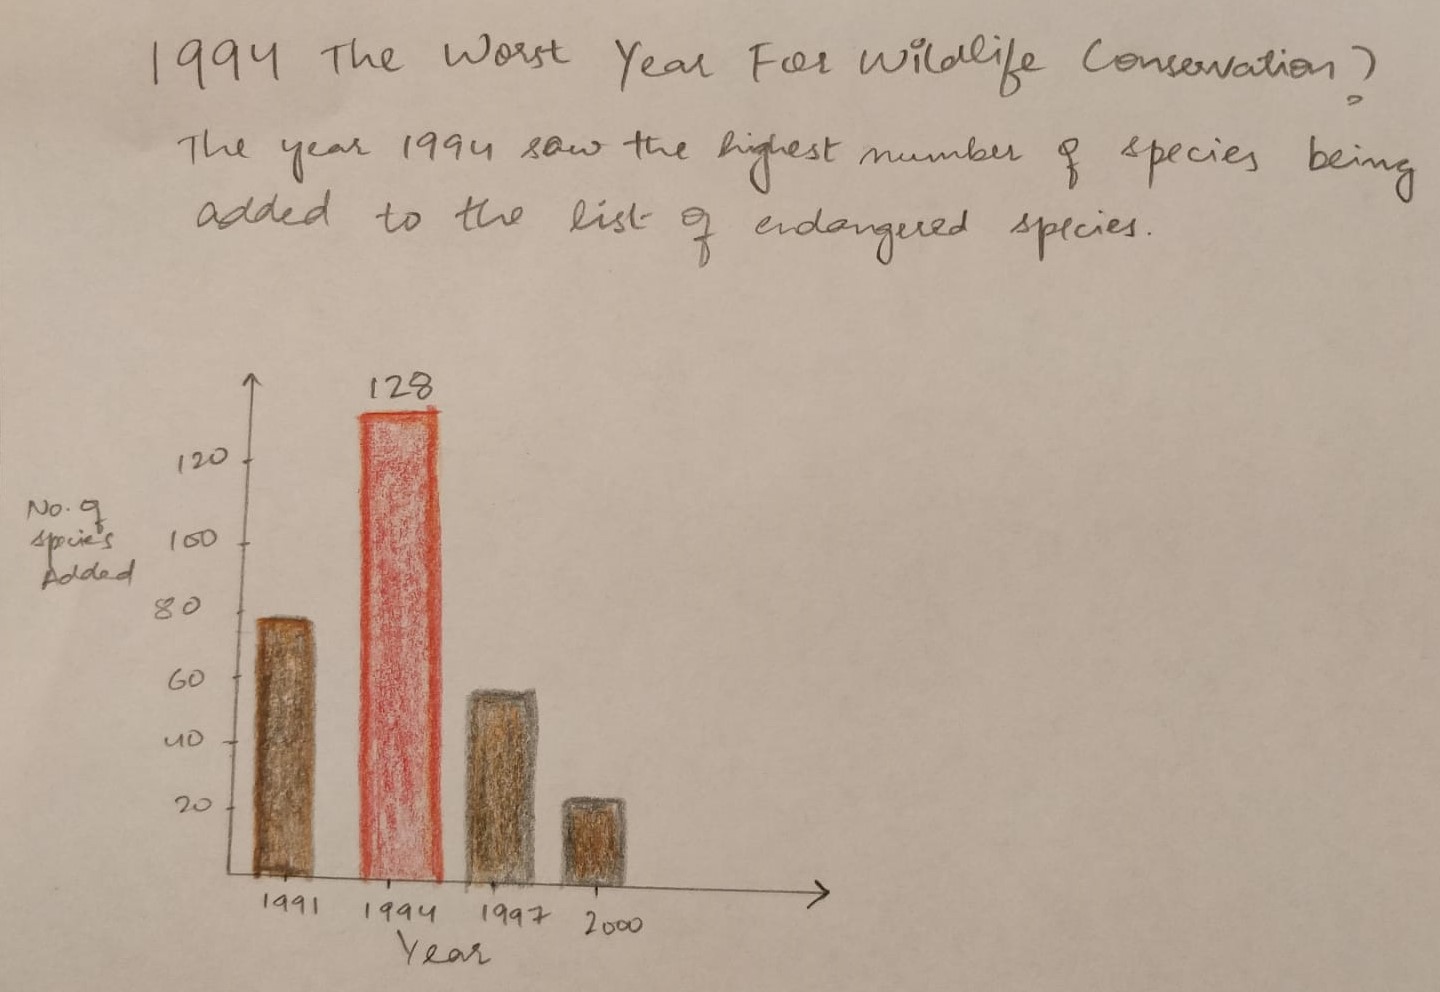 1994 The Worst Year For Wildlife Conservation?
The year 1994 saw the highest number of species being
added to the list of endangered species.
128
120
100
80
60
40
20
No. of
species
Added
1991 1994 1997 2000
Year